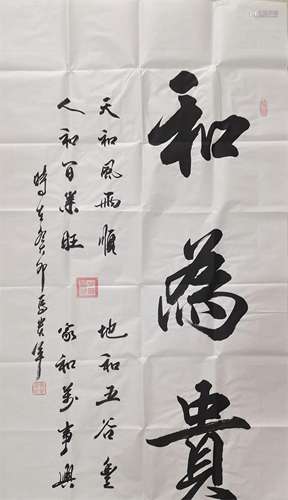 和為貴
天和風雨順 地和五谷豐
人和百業旺 家和萬事興
時在癸卯